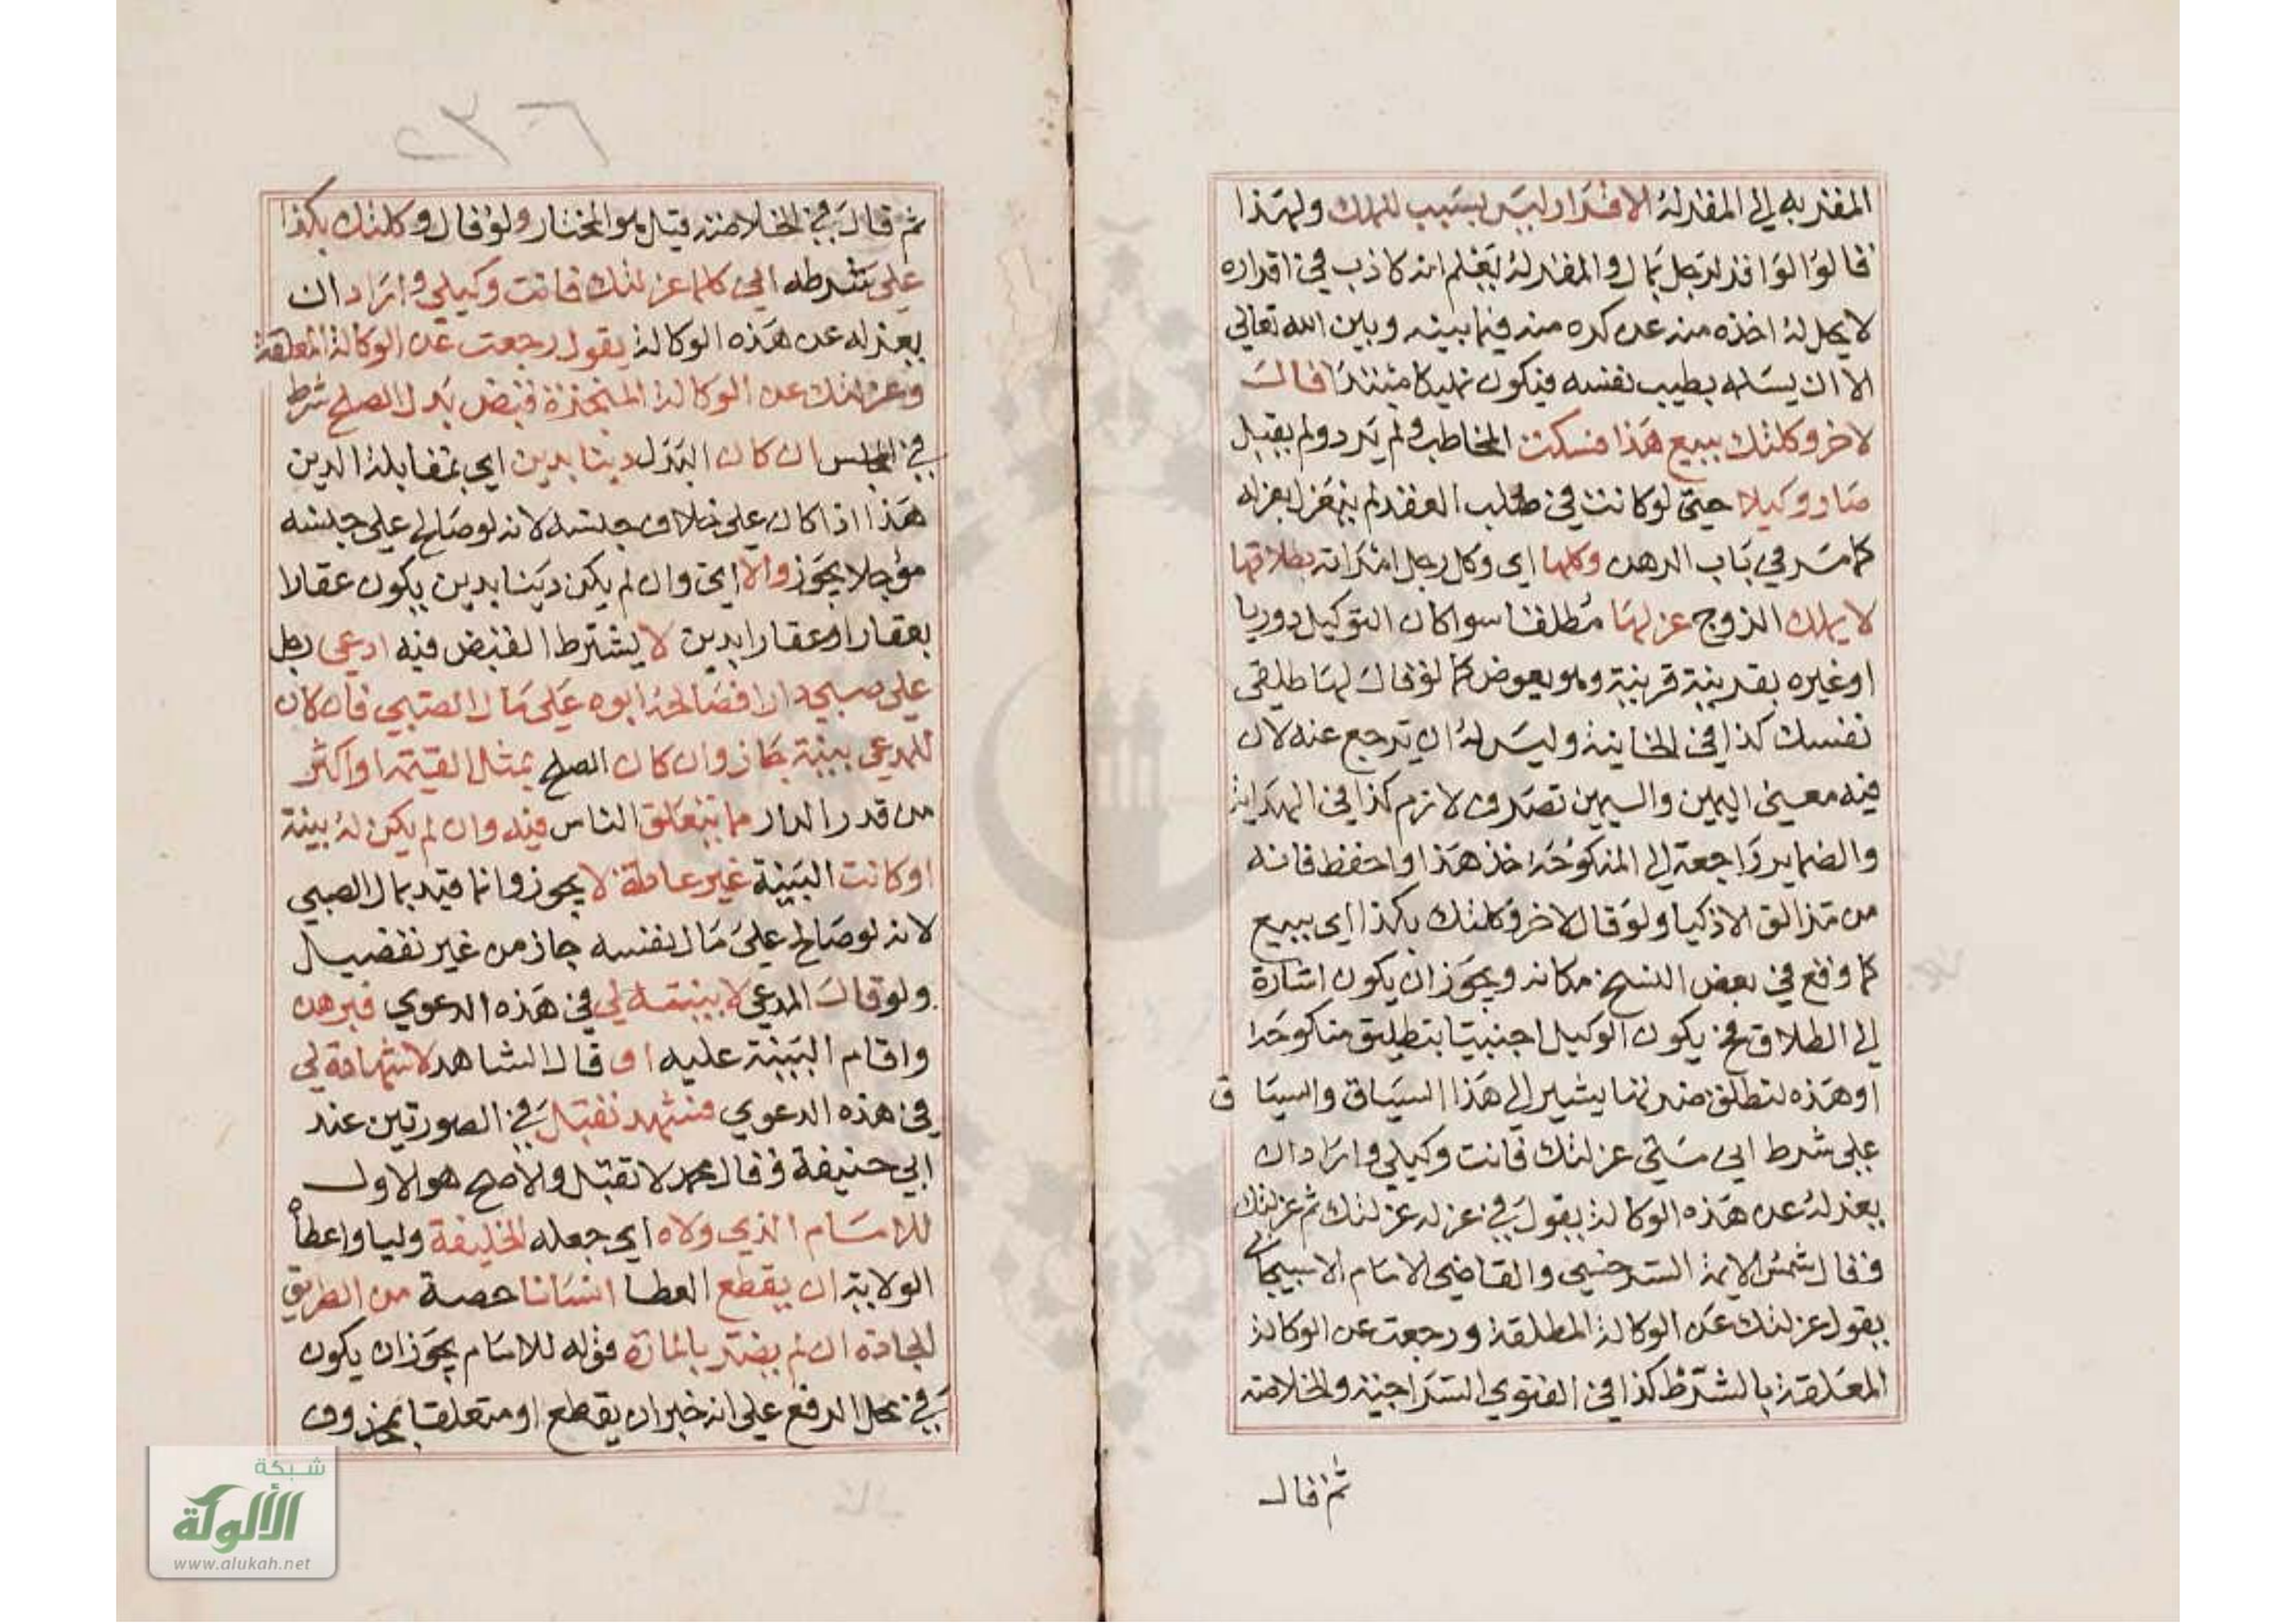 المقر به الى المقر له الاقرار ليس بسبب للملك ولهذا
قالوا لو اقر لرجل بمال والمقر له يعلم انه كاذب في اقراره
لا يحل له اخذه منه عن كره منه فيما بينه وبين الله تعالى
الا ان يسلمه بطيب نفسه فيكون تمليكا مبتدا قال
لاخر وكلتك ببيع هذا فسكت المخاطب ولم يرد ولم يقبل
صار وكيلا حتى لو كانت في طلب العقد لم ينعزل بعزله
كما مر في باب الرهن وكلها اى وكل رجل امراته بطلاقها
لا يملك الزوج عزلها مطلقا سوا كان التوكيل دوريا
او غيره بقرينة قرينة وهو بعوض كما لو قال لها طلقي
نفسك كذا في الخانية وليس له ان يرجع عنه لان
فيه معنى اليمين واليمين تصرف لازم كذا في الهداية
والضماير راجعة الى المنكوحة خذ هذا واحفظ فانه
من مزالق الاذكيا ولو قال لاخر وكلتك بكذا اى ببيع
كما وقع في بعض النسخ مكانه ويجوز ان يكون اشارة
الى الطلاق فح يكون الوكيل اجنبيا بتطليق منكوحة
او هذه لتطلق منه يشير الى هذا السياق والسياق
على شرط اني متى عزلتك فانت وكيلي واراد ان
يعزله عن هذه الوكالة يقول في عزله عزلتك ثم عزلتك
وقال شمس الايمة السرخسي والقاضي الامام الاسبيجابي
يقول عزلتك عن الوكالة المطلقة ورجعت عن الوكالة
المعلقة بالشرط كذا في الفتوى السراجية والخلاصة
ثم قال
٢٣٠٦
ثم قال في الخلاصة قيل هو المختار ولو قال وكلتك بكذا
على شرطه اني كلما عزلتك فانت وكيلي واراد ان
يعزله عن هذه الوكالة يقول رجعت عن الوكالة المعلقة
وعزلتك عن الوكالة المنجزة قبض بدل الصلح شرط
في المجلس ان كان البدل دينا بدين اى بمقابلة الدين
هذا اذا كان على خلاف جنسه لانه لو صالح على جنسه
مؤجلا يجوز والا اى وان لم يكن دينا بدين يكون عقارا
بعقار او عقارا بدين لا يشترط القبض فيه ادعى رجل
على صبي دارا فصالحه ابوه على مال الصبي فان كان
للمدعى بينة جاز وان كان الصلح بمثل القيمة او اكثر
من قدر الدار مما يتعلق الناس فيه وان لم يكن له بينة
او كانت البينة غير عاملة لا يجوز وانما قيد بمال الصبي
لانه لو صالح على مال نفسه جاز من غير تفصيل
ولو قال المدعي لا بينة لي في هذه الدعوي فبرهن
واقام البينة عليه او قال الشاهد لا شهادة لي
في هذه الدعوي فشهد تقبل في الصورتين عند
ابي حنيفة وقال محمد لا تقبل والاصح هو الاول
للامام الذي ولاه اى جعله الخليفة وليا واعطاه
الولاية ان يقطع العطا انسانا حصة من الطريق
الجادة ان لم يضر بالمارة قوله للامام يجوز ان يكون
في محل الرفع على انه خبر ان يقطع او متعلقا بمحذوف
شبكة
الألوكة
www.alukah.net